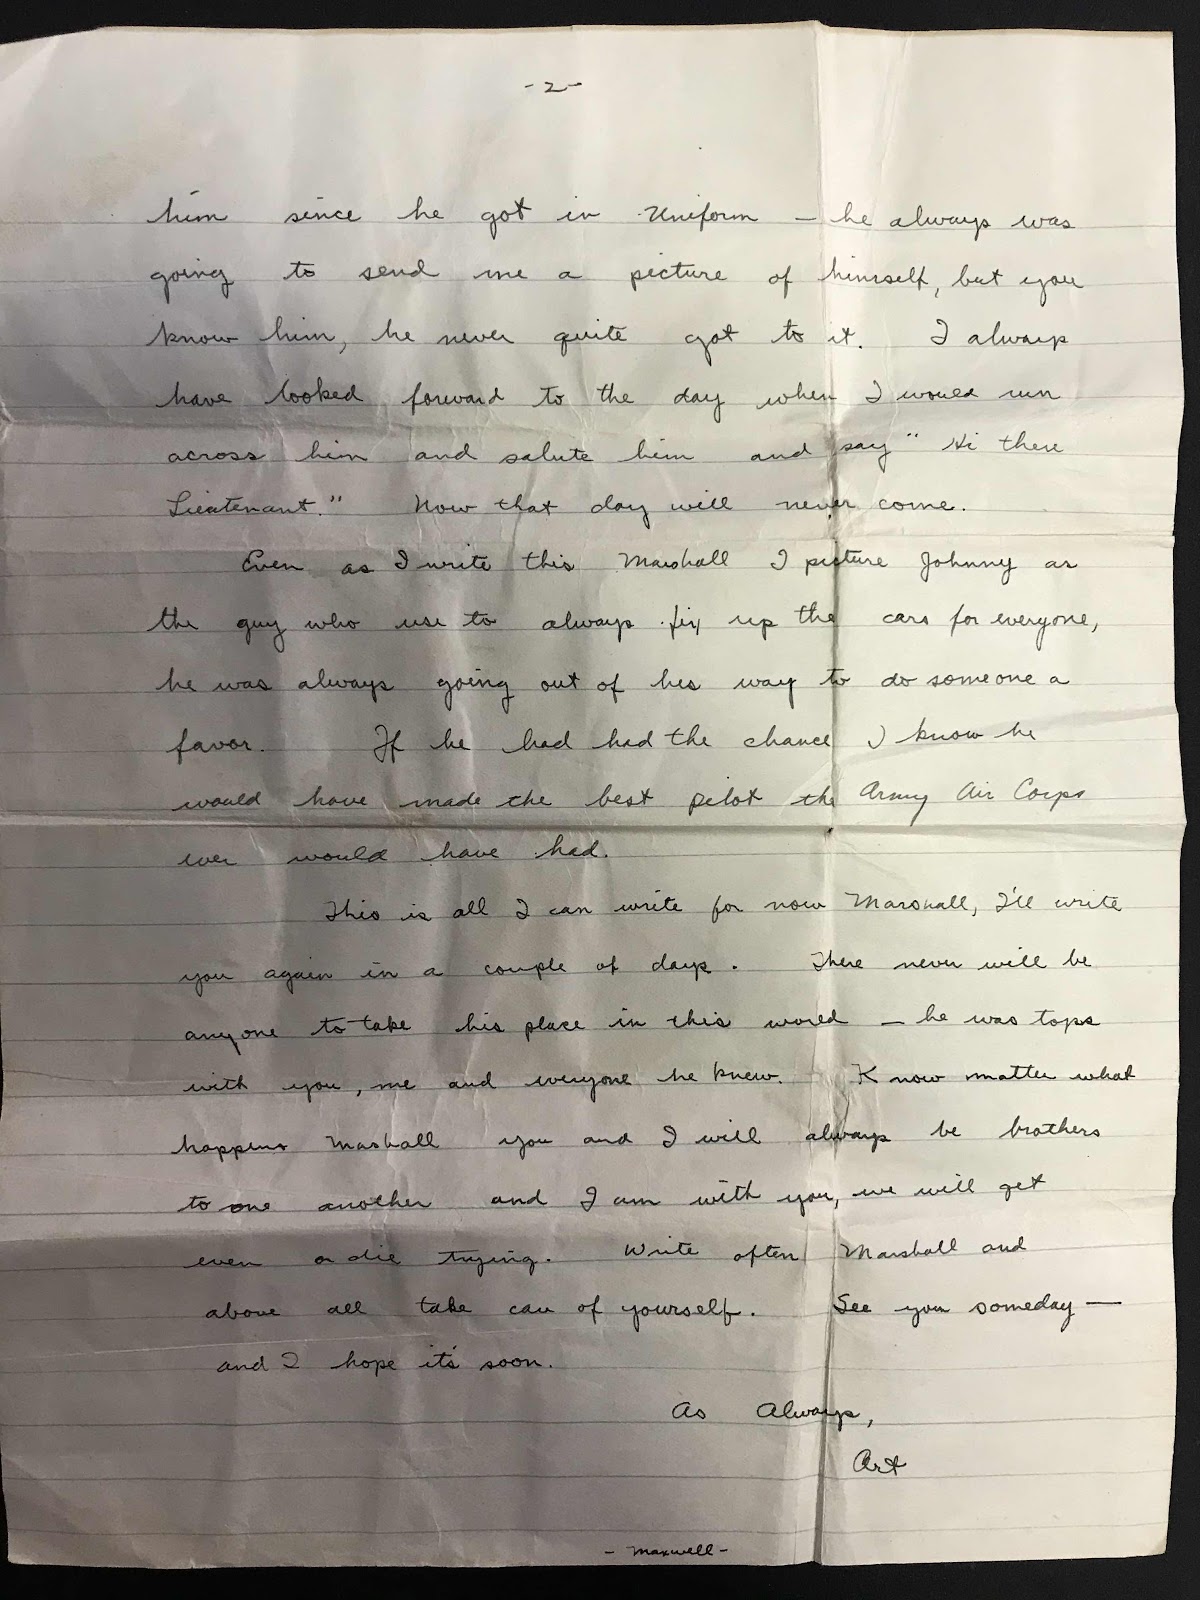 -2-
him since he got in Uniform — he always was
going to send me a picture of himself, but you
know him, he never quite got to it. I always
have looked forward to the day when I would run
across him and salute him and say " Hi there
Lieatenant." Now that day will never come.
Even as I write this Marshall I picture Johnny as
the guy who use to always fix up the cars for everyone,
he was always going out of his way to do someone a
favor. If he had had the chance I know he
would have made the best pilot the Army Air Corps
ever would have had.
This is all I can write for now Marshall, I'll write
you again in a couple of days. There never will be
anyone to take his place in this world — he was tops
with you, me and everyone he knew. K now matter what
happens Marshall you and I will always be brothers
to one another and I am with you, we will get
even or die trying. Write often Marshall and
above all take care of yourself. See you someday —
and I hope it's soon.
As Always,
Art
- Maxwell -